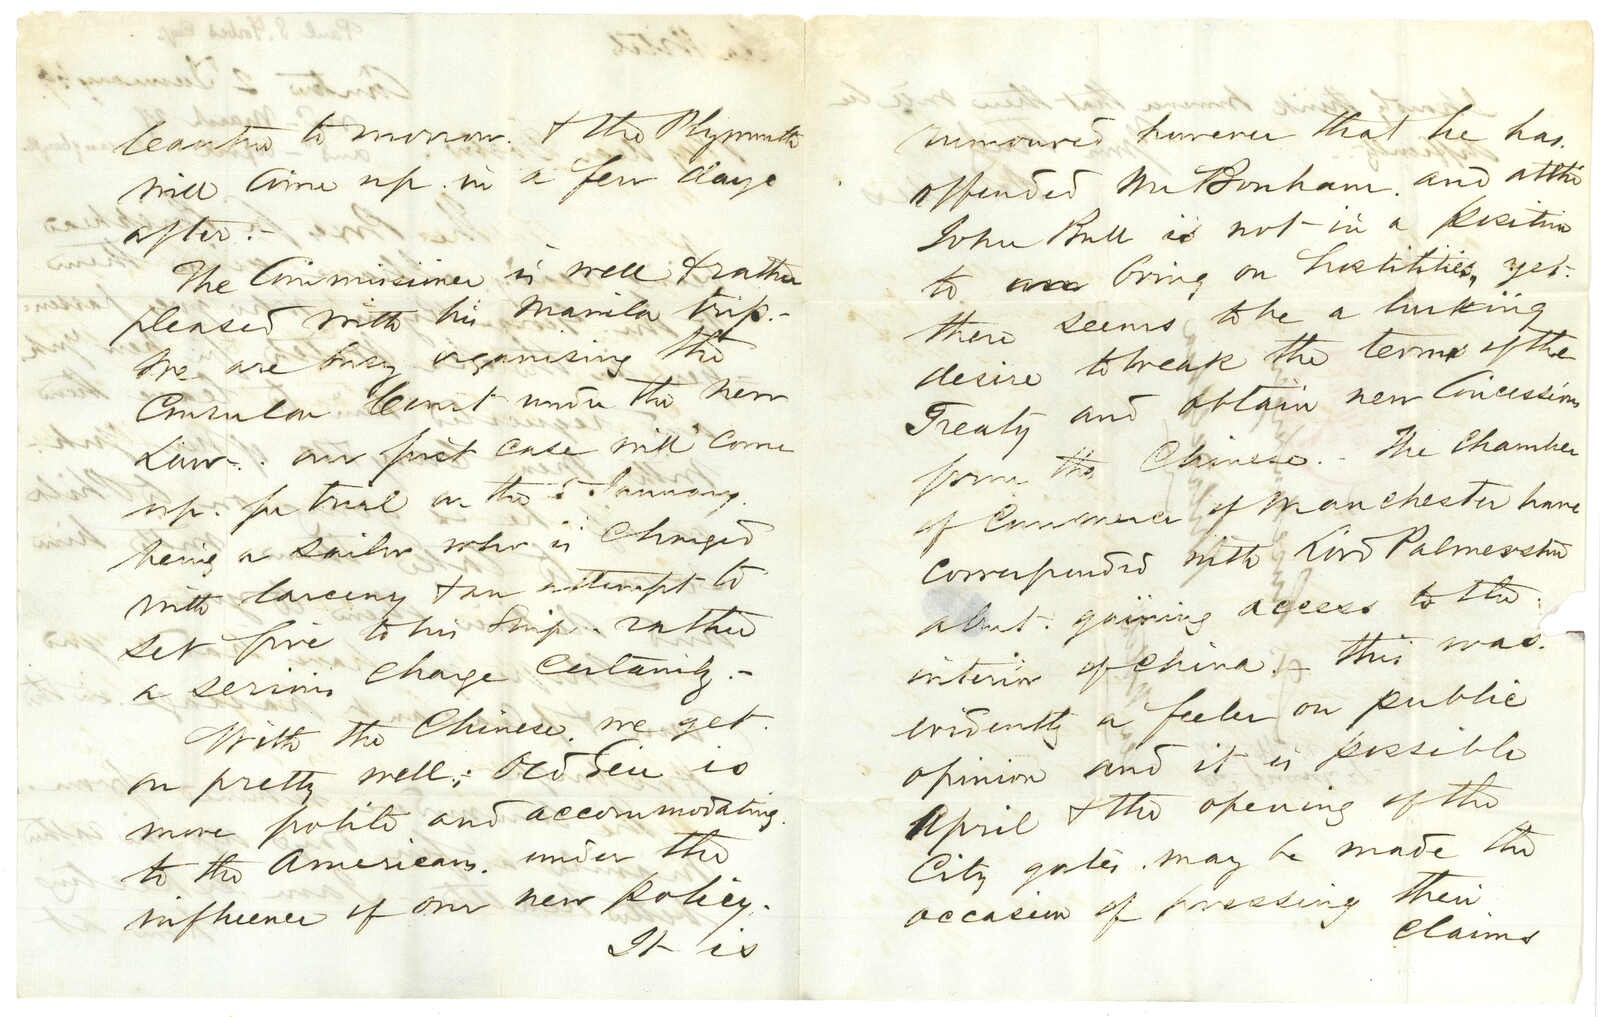 leave to morrow. & the Plymouth
will come up in a few days
after.-
The Commissioner is well & rather
pleased with his Manila trip.-
We are busy organising the
Consular Court under the new
Law-. our first case will come
up. for trial on the 5 January.
being a sailor who is charged
with larceny & an attempt to
set fire to his Ship. rather
a serious charge certainly.-
With the Chinese. we get.
on pretty well.; Old Seu is
more polite and accommodating.
to the Americans. under the
influence of our new policy.
It is
rumoured however that he has.
offended Mr Bonham. and altho
John Bull is not in a position
to bring on hostilities, yet.
there seems to be a lurking
desire to break the terms of the
Treaty and obtain new Concessions
from the Chinese.- The Chamber
of Commerce of Manchester have
corresponded with Lord Palmerston
about. gaining access to the.
interior of China.- this was.
evidently a feeler on public
opinion and it is possible
April & the opening of the
City gates. may be made the
occasion of pressing their
claims